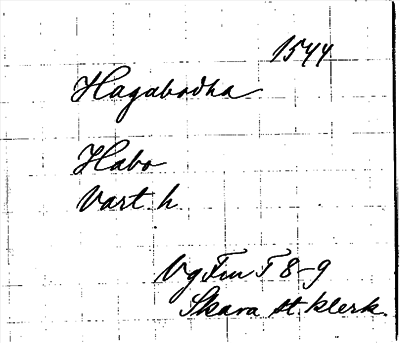 1544
Hagabodha
Habo
Vart. h.
Vg Fm T 8-9
Skara st. klerk.